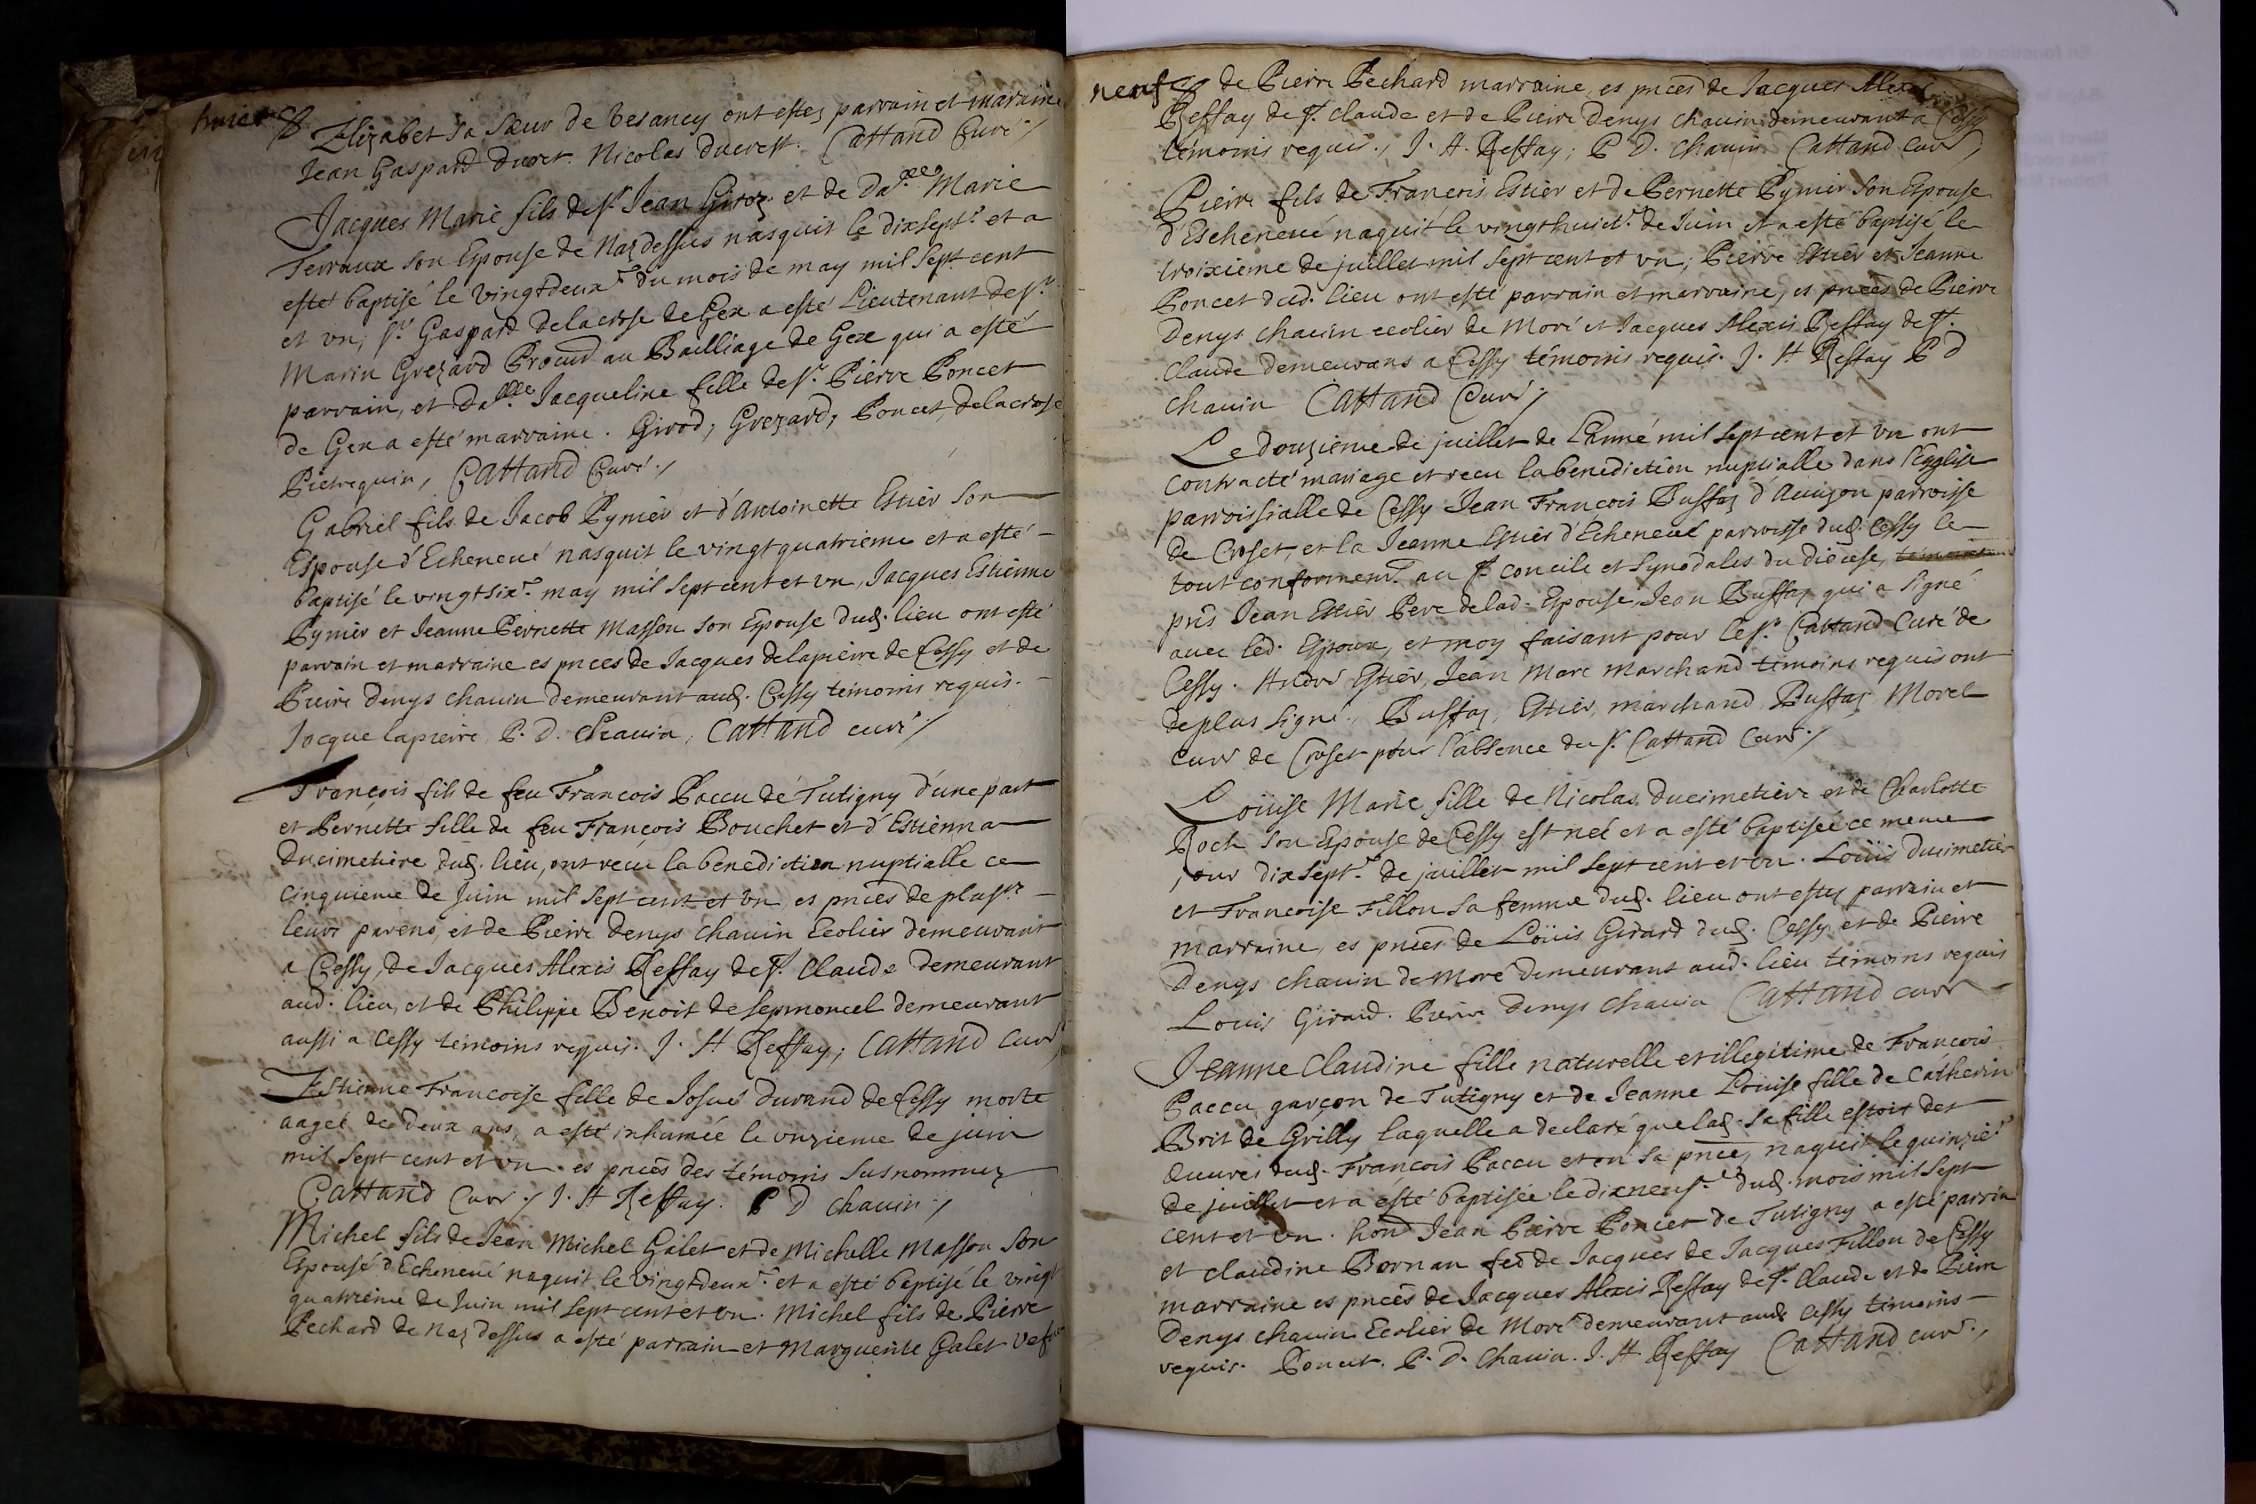 huict 8
Elizabet sa sœur de Vesancy ont estez parrain et maraine
Jean Gaspard Duret. Nicolas ducrest. Cattand Curé
Jacques Marie fils de sr. Jean Giroz et de Dalle Marie
Terraux son Espouse de Naz dessus nasquit le dixsept.e et a
esté baptisé le vingtdeux.e du mois de may mil sept cent
et vn; sr. Gaspard delacrose de Gex a esté Lieutenant de sr.
Marin Grezard Procur au Bailliage de Gex qui a esté
parrain, et Dalle. Jacqueline fille de sr. Pierre Poncet
de Gex a esté marraine. Girod; Grezard; Poncet, delacrose
Pietrequin, Cattand Curé.
Gabriel fils de Jacob Pynier et d'Antoinette Estier son
Espouse d'Echeneué nasquit le vingt quatrieme et a esté
baptisé le vingtsix.e may mil sept cent et vn, Jacques Estienne
Pynier et Jeanne Pernette Masson son Espouse dud. lieu ont esté
parrain et marraine es pnces de Jacques delapierre de Cessy et de
Pierre denys chauin demeurant aud. Cessy témoins requis.
Jacque lapierre P. D. Chauin, Cattand curé
François fils de feu François Paccu de Tutigny d'une part
et Pernette fille de feu François Bouchet et d'Estienna
Ducimetiere dud. lieu, ont recu la benediction nuptialle ce
cinquieme de Juin mil sept cent et vn es pnces de plusrs
leurs parens, et de Pierre denys chauin Ecolier demeurant
a Cessy, de Jacques Alexis Reffay de st. Claude demeurant
aud. lieu, et de Philippe Benoit de Sepmoncel demeurant
aussi a Cessy témoins requis. J. A Reffay; Cattand Curé
Estienne Francoise fille de Josué durand de Cessy morte
aageé de deux ans, a esté inhumée le vnzieme de juin
mil sept cent et vn. es pnces des témoins susnommez
Cattand Curé J. A Reffay. P D chauin
Michel fils de Jean Michel Galet et de Michelle Masson son
Espouse d'Echeneué naquit le vingtdeux.e et a esté baptisé le vingt
quatrieme de Juin mil sept cent et vn. Michel fils de Pierre
Pechard de Naz dessus a esté parrain et Marguerite Galet vefue
neuf 8 de Pierre Pechard marraine, es pnces de Jacques Alexis
Reffay de st. claude et de Pierre denys chauin demeurant a Cessy
témoins requis., J. A. Reffay; P D. chauin Cattand curé
Pierre fils de Francois Estier et de Pernette Pynier son Espouse
d'Escheneué naquit le vingthuict.e de Juin et a esté baptisé le
troixieme de juillet mil sept cent et vn; Pierre Estier et Jeanne
Poncet dud. lieu ont esté parrain et marraine, es pnces de Pierre
denys chauin ecolier de Moré et Jacques Alexis Reffay de st.
Claude demeurans a Cessy témoins requis. J. A Reffay P D
chauin Cattand Curé
Le douzieme de juillet de L'anné mil sept cent et vn ont
contracté mariage et recu la benediction nuptialle dans l'Egglise
parroissialle de Cessy Jean François Buffaz d'Auizon parroisse
de Croset, et la Jeanne Estier d'Echeneué parroisse dud. Cessy le
tout conforment. au st. concile et synodales du diocese,
pns Jean Estier Pere delad. Espouse, Jean Buffaz qui a signé
auec led. Espoux, et moy faisant pour le sr. Cattand Curé de
Cessy. André Estier, Jean Marc Marchand témoins requis ont
deplus signé. Buffaz, Estier, marchand Buffaz, Morel
curé de Croset pour l'absence du sr. Cattand Curé.
Loüise Marie fille de Nicolas Ducimetiere et de Charlotte
Roch son Espouse de Cessy est neé et a esté baptisée ce meme
jour dixsept.e de juillet mil sept cent et vn. Loüis ducimetier
et Francoise Fillon sa femme dud. lieu ont estez parrain et
marraine, es pnces de Loüis Girard dud. Cessy et de Pierre
Denys chauin de Moré demeurant aud. lieu témoins requis
Louis Girard. Pierre Denys chauin Cattand curé
Jeanne Claudine fille naturelle et illegitime de François
Paccu, garçon de Tutigny et de Jeanne Loüise fille de Catherin
Brit de Grilly laquelle a declaré que lad. sa fille estoit des
œuvres dud. François Paccu et en sa pnce, naquit le quinzie.
de juillet et a esté baptisée le dixneuf.e dud. mois mil sept
cent et vn. hon Jean Pierre Poncet de Tutigny a esté parrin
et claudine Bornan fed de Jacques de Jacques Fillon de Cessy
marraine es pnces de Jacques Alexis Reffay de st. Claude et de Pierre
Denys chauin Ecolier de Moré demeurant aud Cessy témoins
requis. Poncet. P. D. Chauin. J. A Reffay Cattand curé.